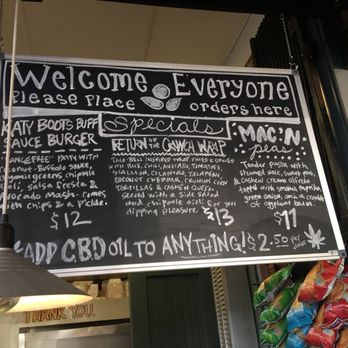 Welcome Everyone
Please Place orders here
Specials
KATY BOOTS BUFF
SAUCE BURGER
Patty with
coconut-Buffalo sauce
greens, chipotle
salsa fresca &
Avocado mash - comes
with chips & a pickle.
$12
RETURN OF THE CRUNCH WRAP
with rice, chili, avocado, tomatoes,
scallion, cilantro, jalapeño,
coconut cheddar, crunchy corn
tortillas & cashew queso
served with a side salad
and chipotle aioli for you
dipping pleasure. $13
MAC'N
peas
Tender pasta with
steamed kale, sweet peas
& cashew cream alfredo
topped with smoked paprika
green onion, and a crumble
of eggplant bacon
$11
ADD CBD OIL TO ANYTHING! $2.50 per dose
THANK YOU.